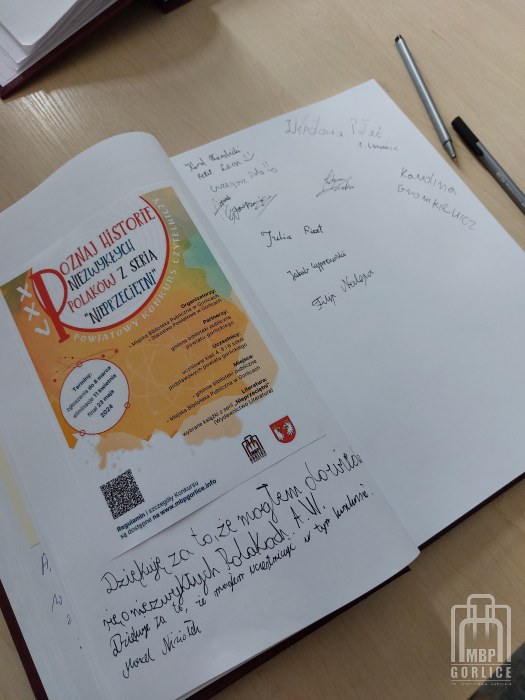 XXV
POZNAJ HISTORIE
NIEZWYKŁYCH
POLAKÓW Z SERIĄ
"NIEPRZECIĘTNI"
POWIATOWY KONKURS CZYTELNICZY
Organizatorzy:
- Miejska Biblioteka Publiczna w Gorlicach
- Starostwo Powiatowe w Gorlicach
Partnerzy:
gminne biblioteki publiczne
powiatu gorlickiego
Uczestnicy:
uczniowie klas 4, 5 i 6 szkół
podstawowych powiatu gorlickiego
Miejsce:
- gminne biblioteki publiczne
- Miejska Biblioteka Publiczna w Gorlicach
Literatura:
wybrane książki z serii „Nieprzeciętni"
(Wydawnictwo Literatura)
Terminy:
zgłoszenia do 8 marca
eliminacje 11 kwietnia
finał 23 maja
2024
Regulamin i szczegóły Konkursu
są dostępne na www.mbpgorlice.info
Dziękuję za to, że mogłem dowiedzieć
się o niezwykłych Polakach. A. W.
Dziękuję za to, że mogłem uczestniczyć w tym konkursie.
Karolina
Gromkiewicz
Julia
Jakub
Filip
MBP
GORLICE